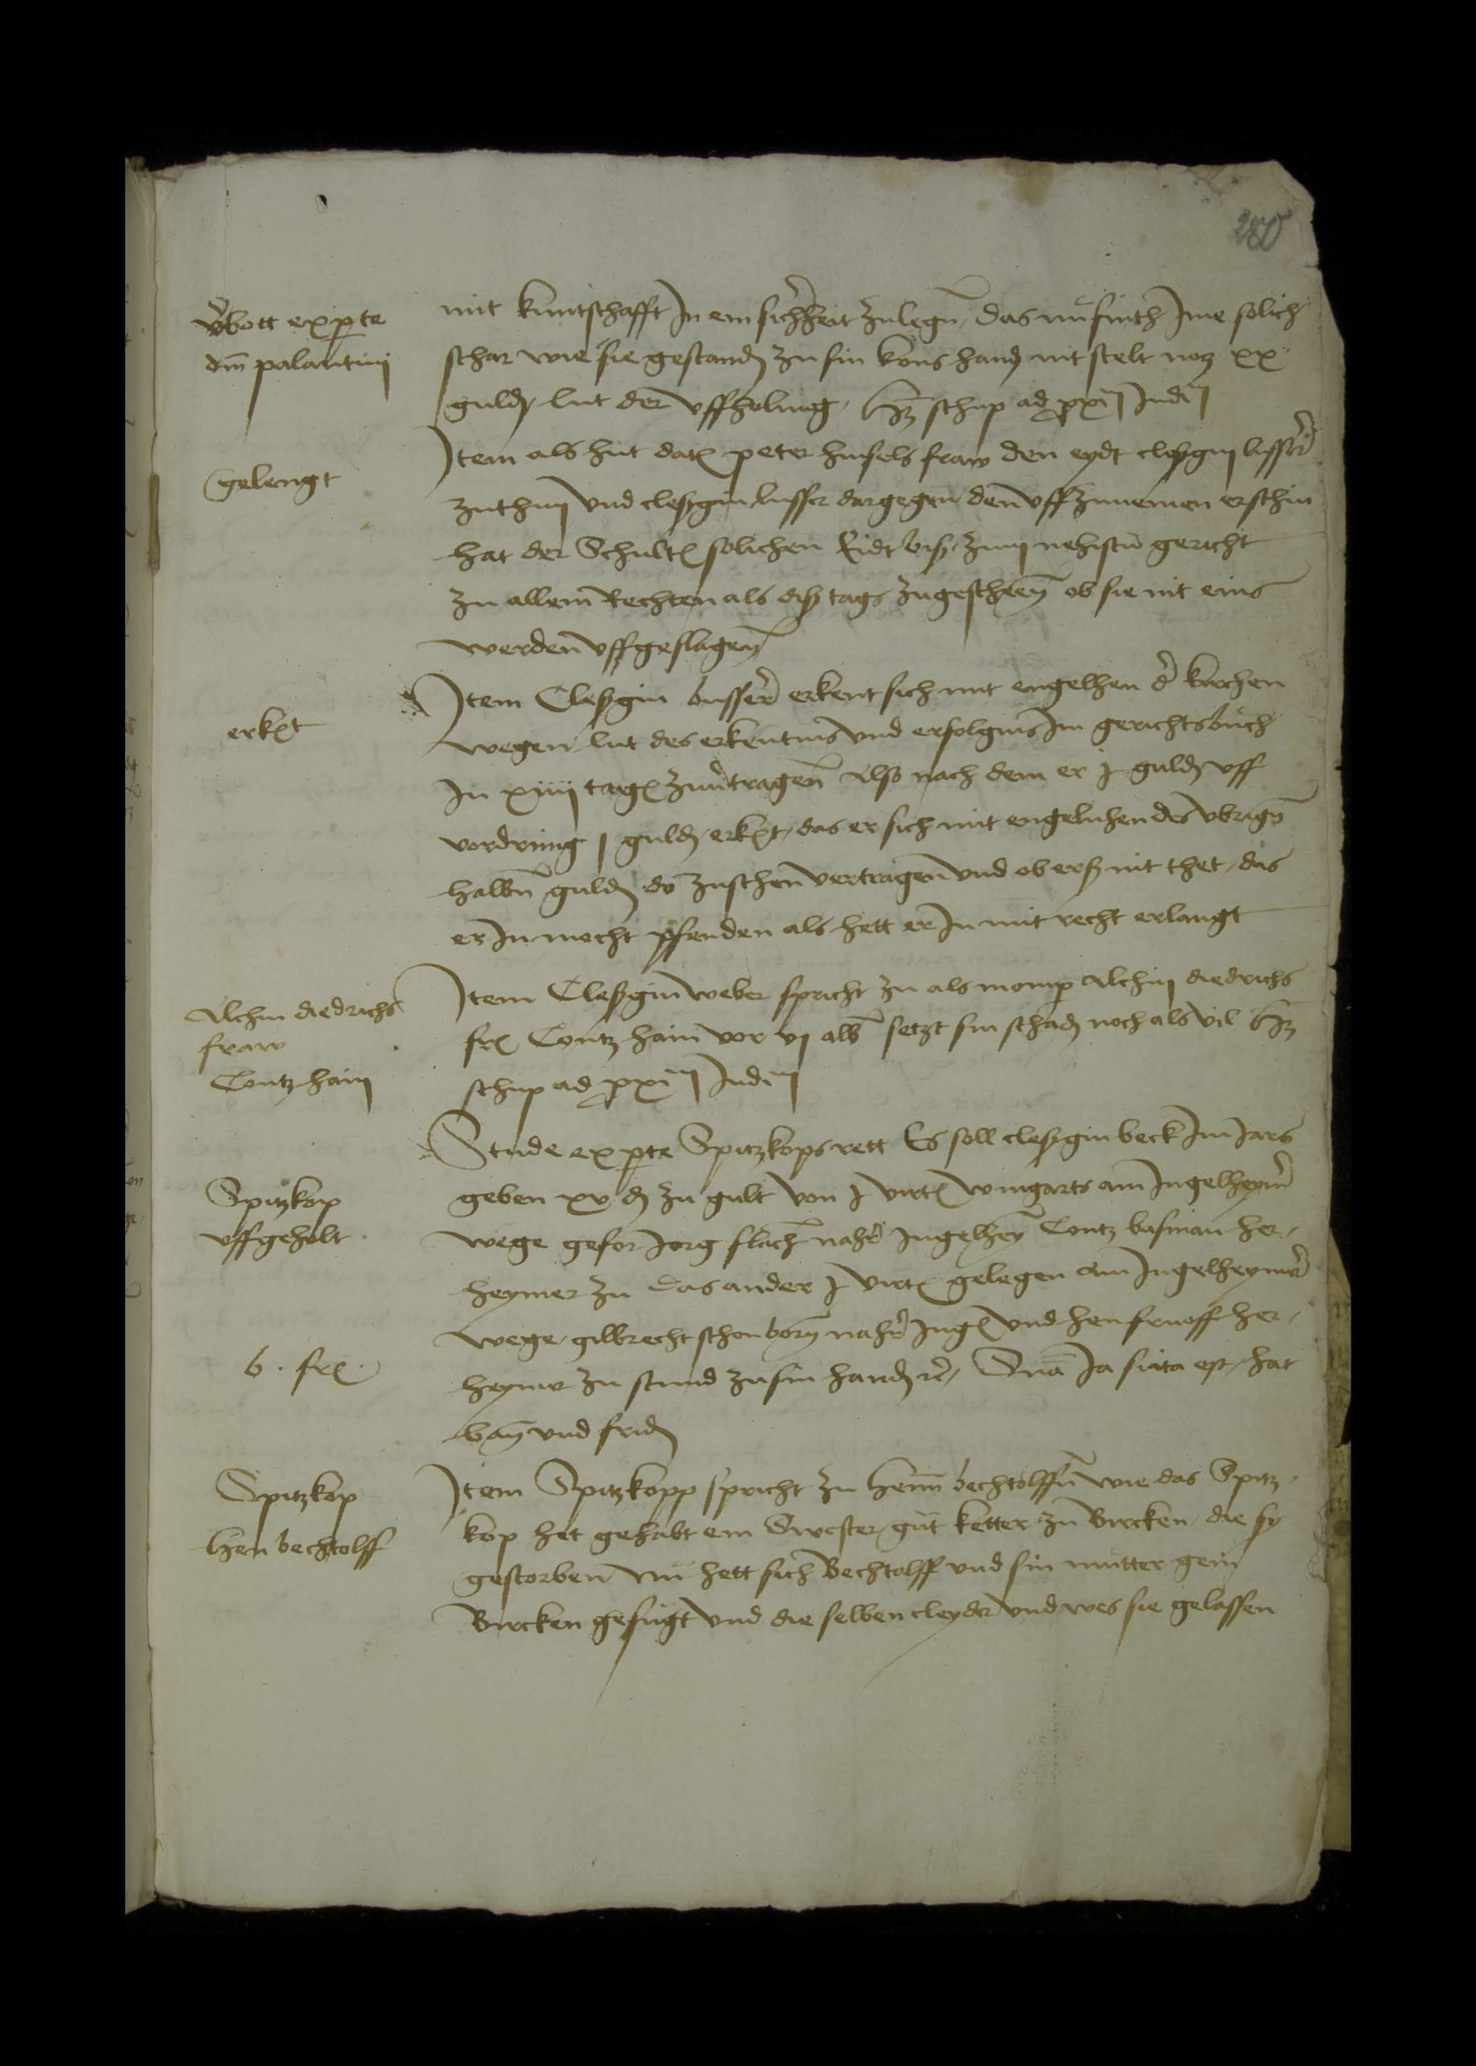 280
v̾bott ex p̱te
dm̄ palantini
mit kuntschafft In ein sich̾heit zulegn̄ / das nu sinth Ime solich
schar wie sie gestandꝭ zu sin kons handꝭ nit stelt noꝫ xx
guldꝭ lut der vffholung /
schup ad px̱i Judi
gelengt
Item als hut datꝭ peter hußels fraw den eydt cleßgin busser̾
zuthun vnd cleßgin busser dargegen den vff zunemen erschin
hat der Schultꝭ solichen Eidt biß zum nehistn̄ gericht
zu allem Rechten als diß tags zugescheen ob sie nit eins
werden vffgeslagen
erkͭt
Item Cleßgin busser̾ erkent sich mit engelhen d̾ kirchen
wegen lut des erkentnis vnd erfolgnis Im gerichtsbuch
In xiiij tagꝭ zuu̾tragen Also nach dem er j guldꝭ vff
vordrung j guldꝭ erkͭt / das er sich mit engelnhen des vbrign̄
halbn̄ guldꝭ do zuschen vertragen vnd ob erß nit thet / das
er In mocht pfenden als hett er In mit recht erlangt
Alchin diedrichs
fraw
Contz hain
Item Cleßgin weber spricht zu als momp̱ Alchin diedrichs
frꝭ Contz hain vor vj alb̄ setzt sin schadꝭ noch als vil
schup ad px̱i Judi
Spitzkop
vffgeholt
Stude ex p̱te Spitzkops rett Es soll cleßgin beck Im Jars
geben xv ₰ zu gult von j virtꝭ wingarts am Ingelheym̾
wege gefor Jorg flach nah̾ Ingelhey̅ Contz baßman her /
heymer zu das ander j virtꝭ gelegen am Ingelheymer̾
wege / gilbrecht schonborn nah̾ Ingꝭ vnd hen fruoff her /
b . frꝭ
heymer zu stund zu sin handꝭ rc̾ / Sn̄a Ja sinta est / hat
ban vnd fridꝭ
Spitzkop
Hen bechtolff
Item Spitzkopp spricht zu Henn bechtolffn̄ wie das Spitz
kop het gehabt ein Swester / gut ketter zu Bircken / die sy
gestorben nu hett sich Bechtolff vnd sin mutter gein
Bircken gefugt vnd die selben cleyder vnd wes sie gelassen